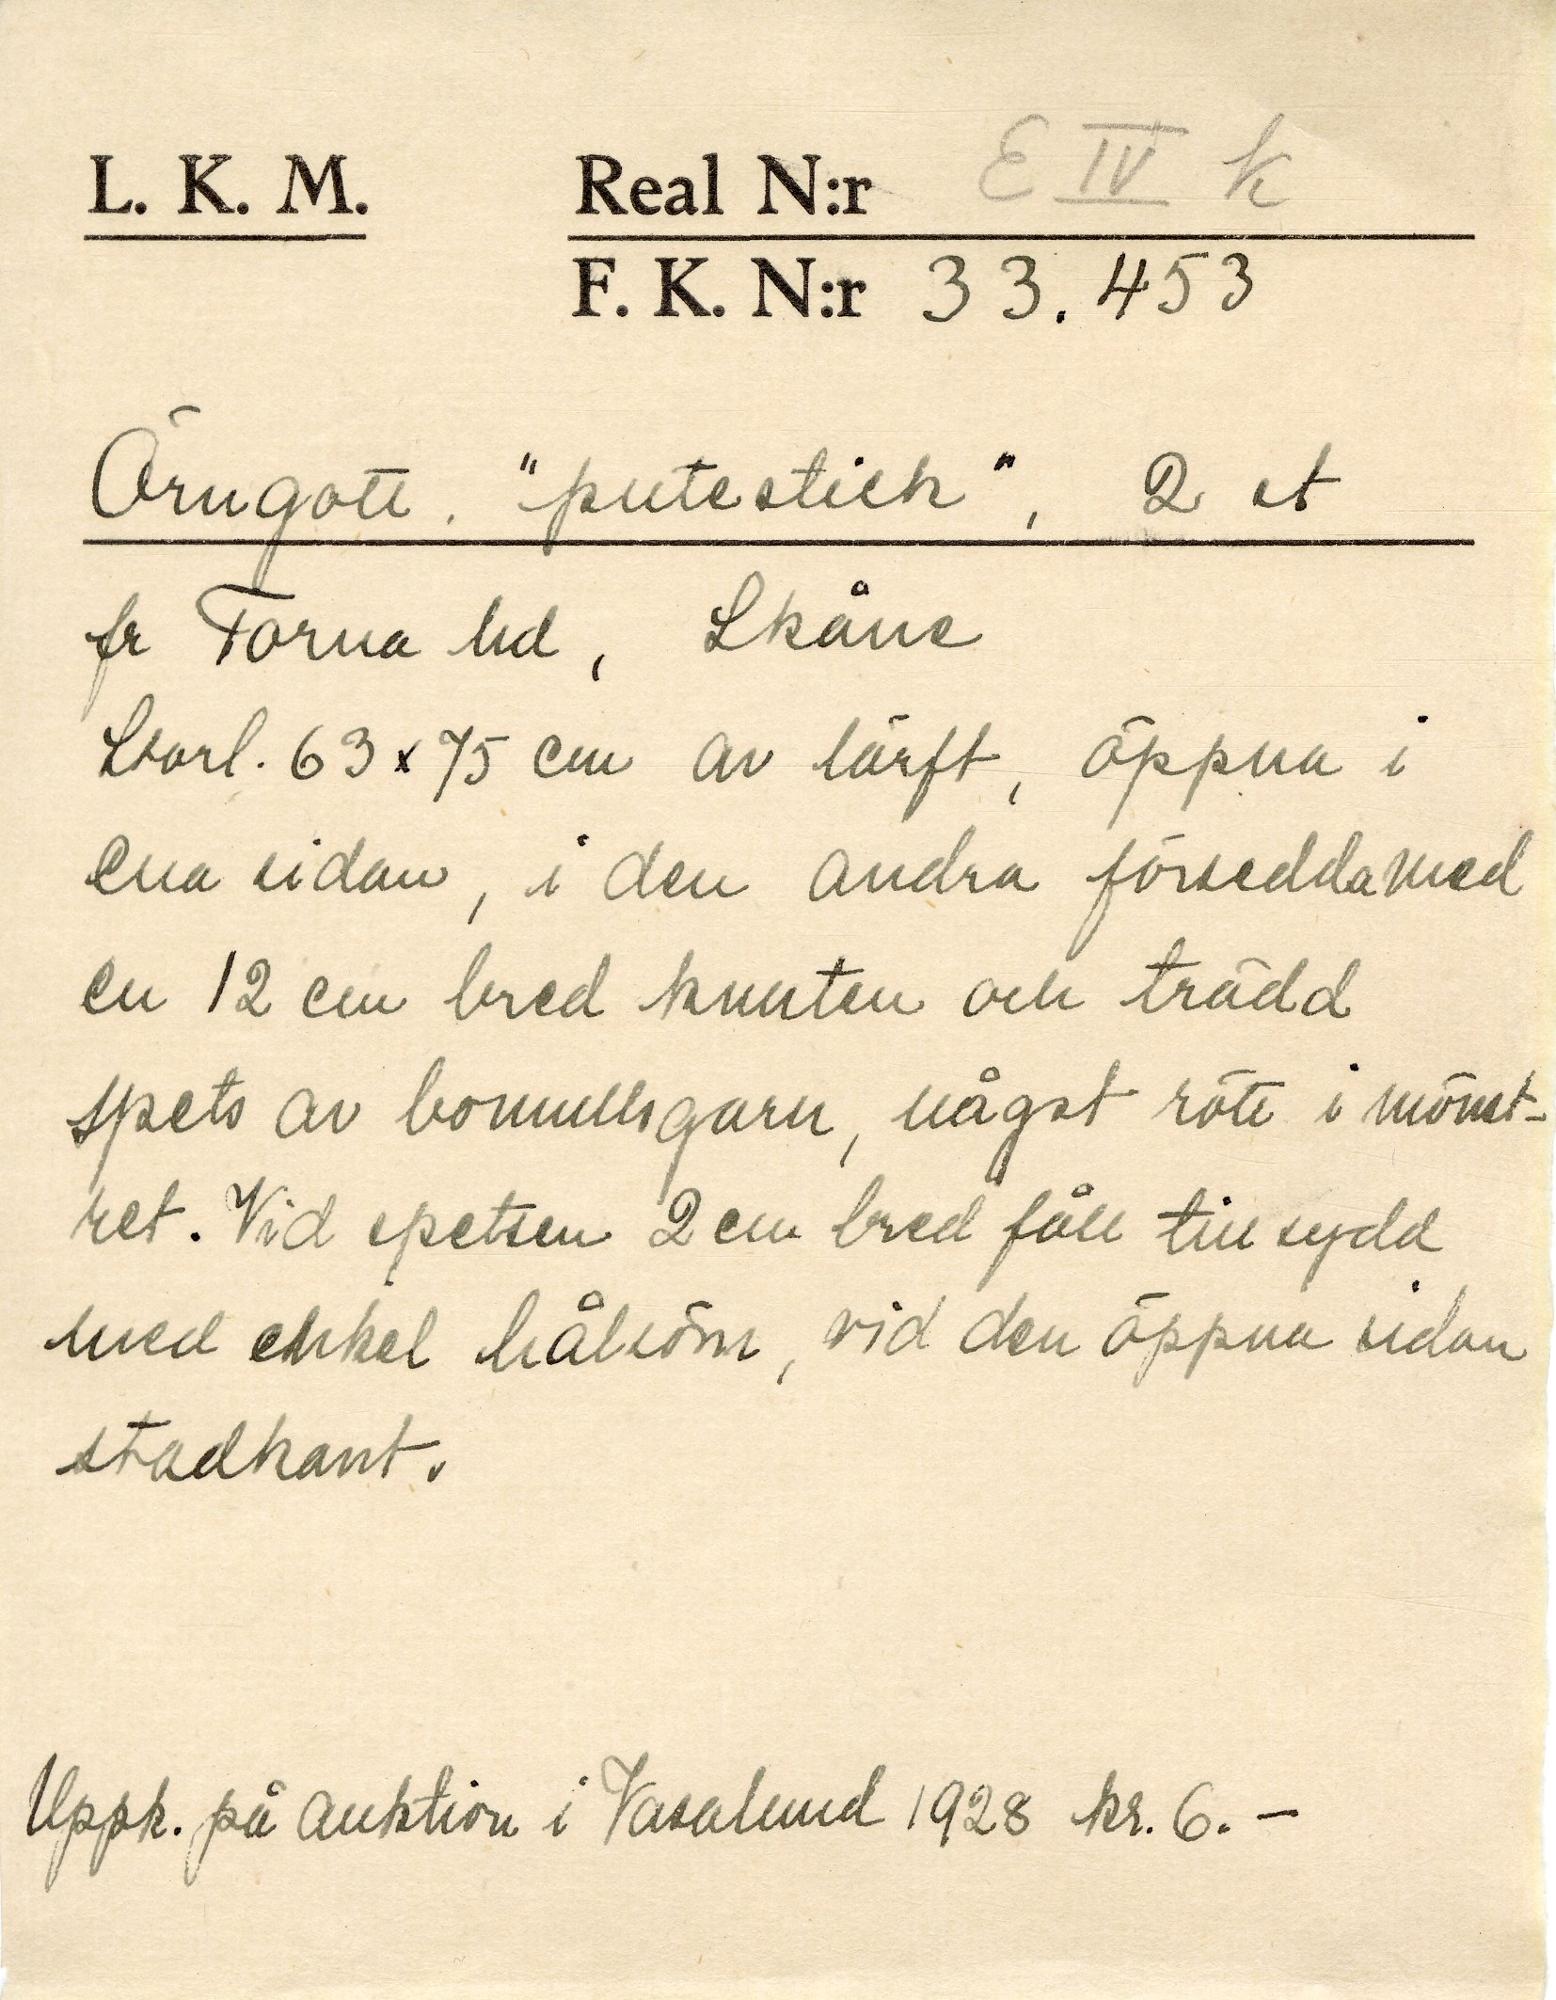 L. K. M. Real N:r E IV k
F. K. N:r 33.453
Örngott. "putestick", 2 st
fr Torna hd, Skåne
Storl. 63 x 75 cm av lärft, öppna i
ena sidan, i den andra försedda med
en 12 cm bred knuten och trädd
spets av bomullsgarn, någst rött i mönst-
ret. Vid spetsen 2 cm bred fåll tillsydd
med enkel hålsöm, vid den öppna sidan
stadkant.
Uppk. på auktion i Vasalund 1928 kr. 6. –